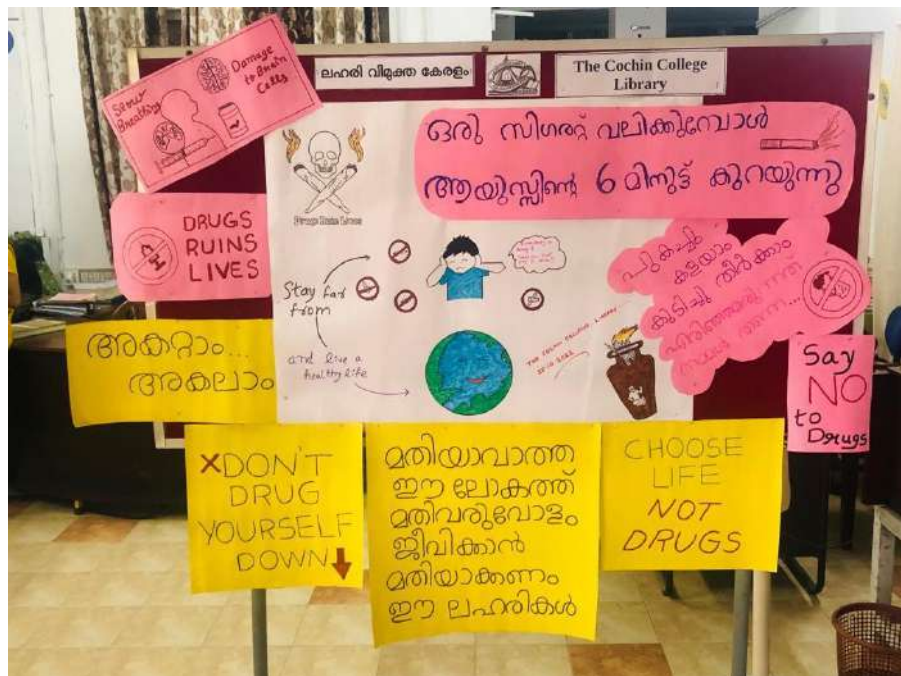 Slow
Breathing
Damage
to Brain
Cells
ലഹരി വിമുക്ത കേരളം
The Cochin College
Library
ഒരു സിഗരറ്റ് വലിക്കുമ്പോൾ
ആയുസ്സിന്റെ 6 മിനുട്ട് കുറയുന്നു
Drugs Ruin Lives
DRUGS
RUINS
LIVES
Stay far
from
and live a
healthy life
പുകച്ചും
കളയാം
കുടിച്ചു തീർക്കാം
എരിഞ്ഞമരുന്നത്
Say
NO
to
Drugs
അകറ്റാം...
അകലാം
XDON'T
DRUG
YOURSELF
DOWN
മതിയാവാത്ത
ഈ ലോകത്ത്
മതിവരുവോളം
ജീവിക്കാൻ
മതിയാക്കണം
ഈ ലഹരികൾ
CHOOSE
LIFE
NOT
DRUGS